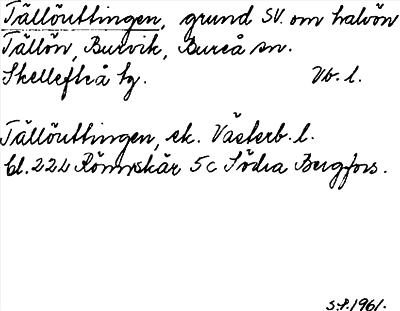 Tällöuttingen, grund SV. om halvön
Tällön, Burvik, Bureå sn.
Skellefteå tg. Vb. l.
Tällöuttingen, ek. Västerb. l.
bl. 22L Rönnskär 5c Södra Bergfors.
S.F. 1961.